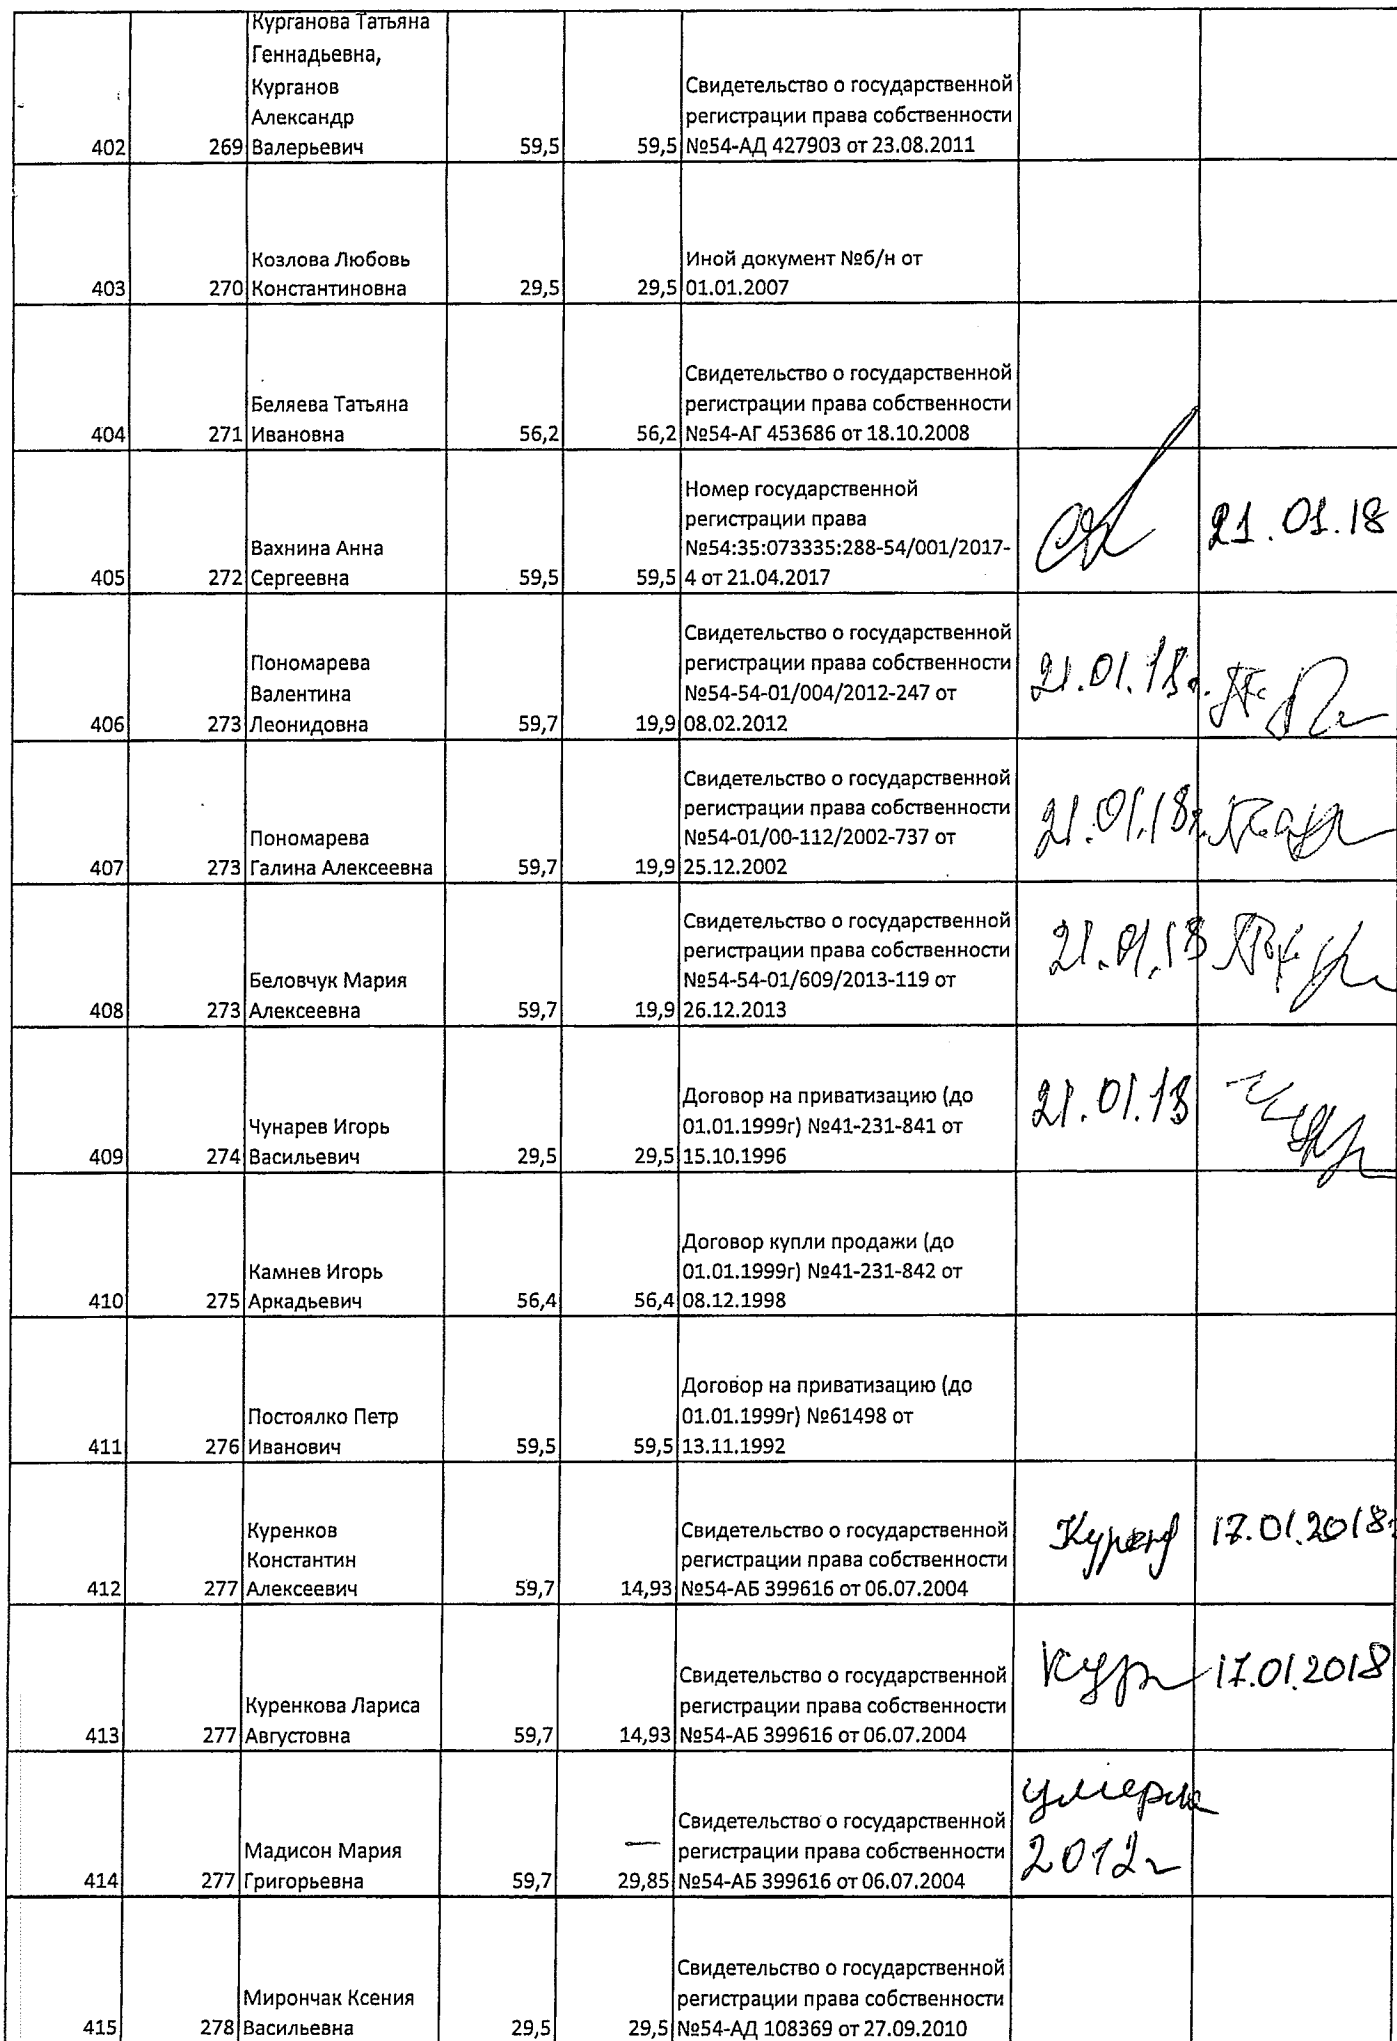 Курганова Татьяна
Геннадьевна,
Курганов
Александр
402 269 Валерьевич 59,5 59,5
Свидетельство о государственной
регистрации права собственности
№54-АД 427903 от 23.08.2011
Козлова Любовь
403 270 Константиновна 29,5 29,5
Иной документ №б/н от
01.01.2007
Беляева Татьяна
404 271 Ивановна 56,2 56,2
Свидетельство о государственной
регистрации права собственности
№54-АГ 453686 от 18.10.2008
Вахнина Анна
405 272 Сергеевна 59,5 59,5
Номер государственной
регистрации права
№54:35:073335:288-54/001/2017-
4 от 21.04.2017
21.01.18
Пономарева
Валентина
406 273 Леонидовна 59,7 19,9
Свидетельство о государственной
регистрации права собственности
№54-54-01/004/2012-247 от
08.02.2012
21.01.18г.
Пономарева
407 273 Галина Алексеевна 59,7 19,9
Свидетельство о государственной
регистрации права собственности
№54-01/00-112/2002-737 от
25.12.2002
21.01.18г.
Беловчук Мария
408 273 Алексеевна 59,7 19,9
Свидетельство о государственной
регистрации права собственности
№54-54-01/609/2013-119 от
26.12.2013
21.01.18
Чунарев Игорь
409 274 Васильевич 29,5 29,5
Договор на приватизацию (до
01.01.1999г) №41-231-841 от
15.10.1996
21.01.18
Камнев Игорь
410 275 Аркадьевич 56,4 56,4
Договор купли продажи (до
01.01.1999г) №41-231-842 от
08.12.1998
Постоялко Петр
411 276 Иванович 59,5 59,5
Договор на приватизацию (до
01.01.1999г) №61498 от
13.11.1992
Куренков
Константин
412 277 Алексеевич 59,7 14,93
Свидетельство о государственной
регистрации права собственности
№54-АБ 399616 от 06.07.2004
17.01.2018г
Куренкова Лариса
413 277 Августовна 59,7 14,93
Свидетельство о государственной
регистрации права собственности
№54-АБ 399616 от 06.07.2004
Кур 17.01.2018
Мадисон Мария
414 277 Григорьевна 59,7 — 29,85
Свидетельство о государственной
регистрации права собственности
№54-АБ 399616 от 06.07.2004
умерла
2012г
Мирончак Ксения
415 278 Васильевна 29,5 29,5
Свидетельство о государственной
регистрации права собственности
№54-АД 108369 от 27.09.2010